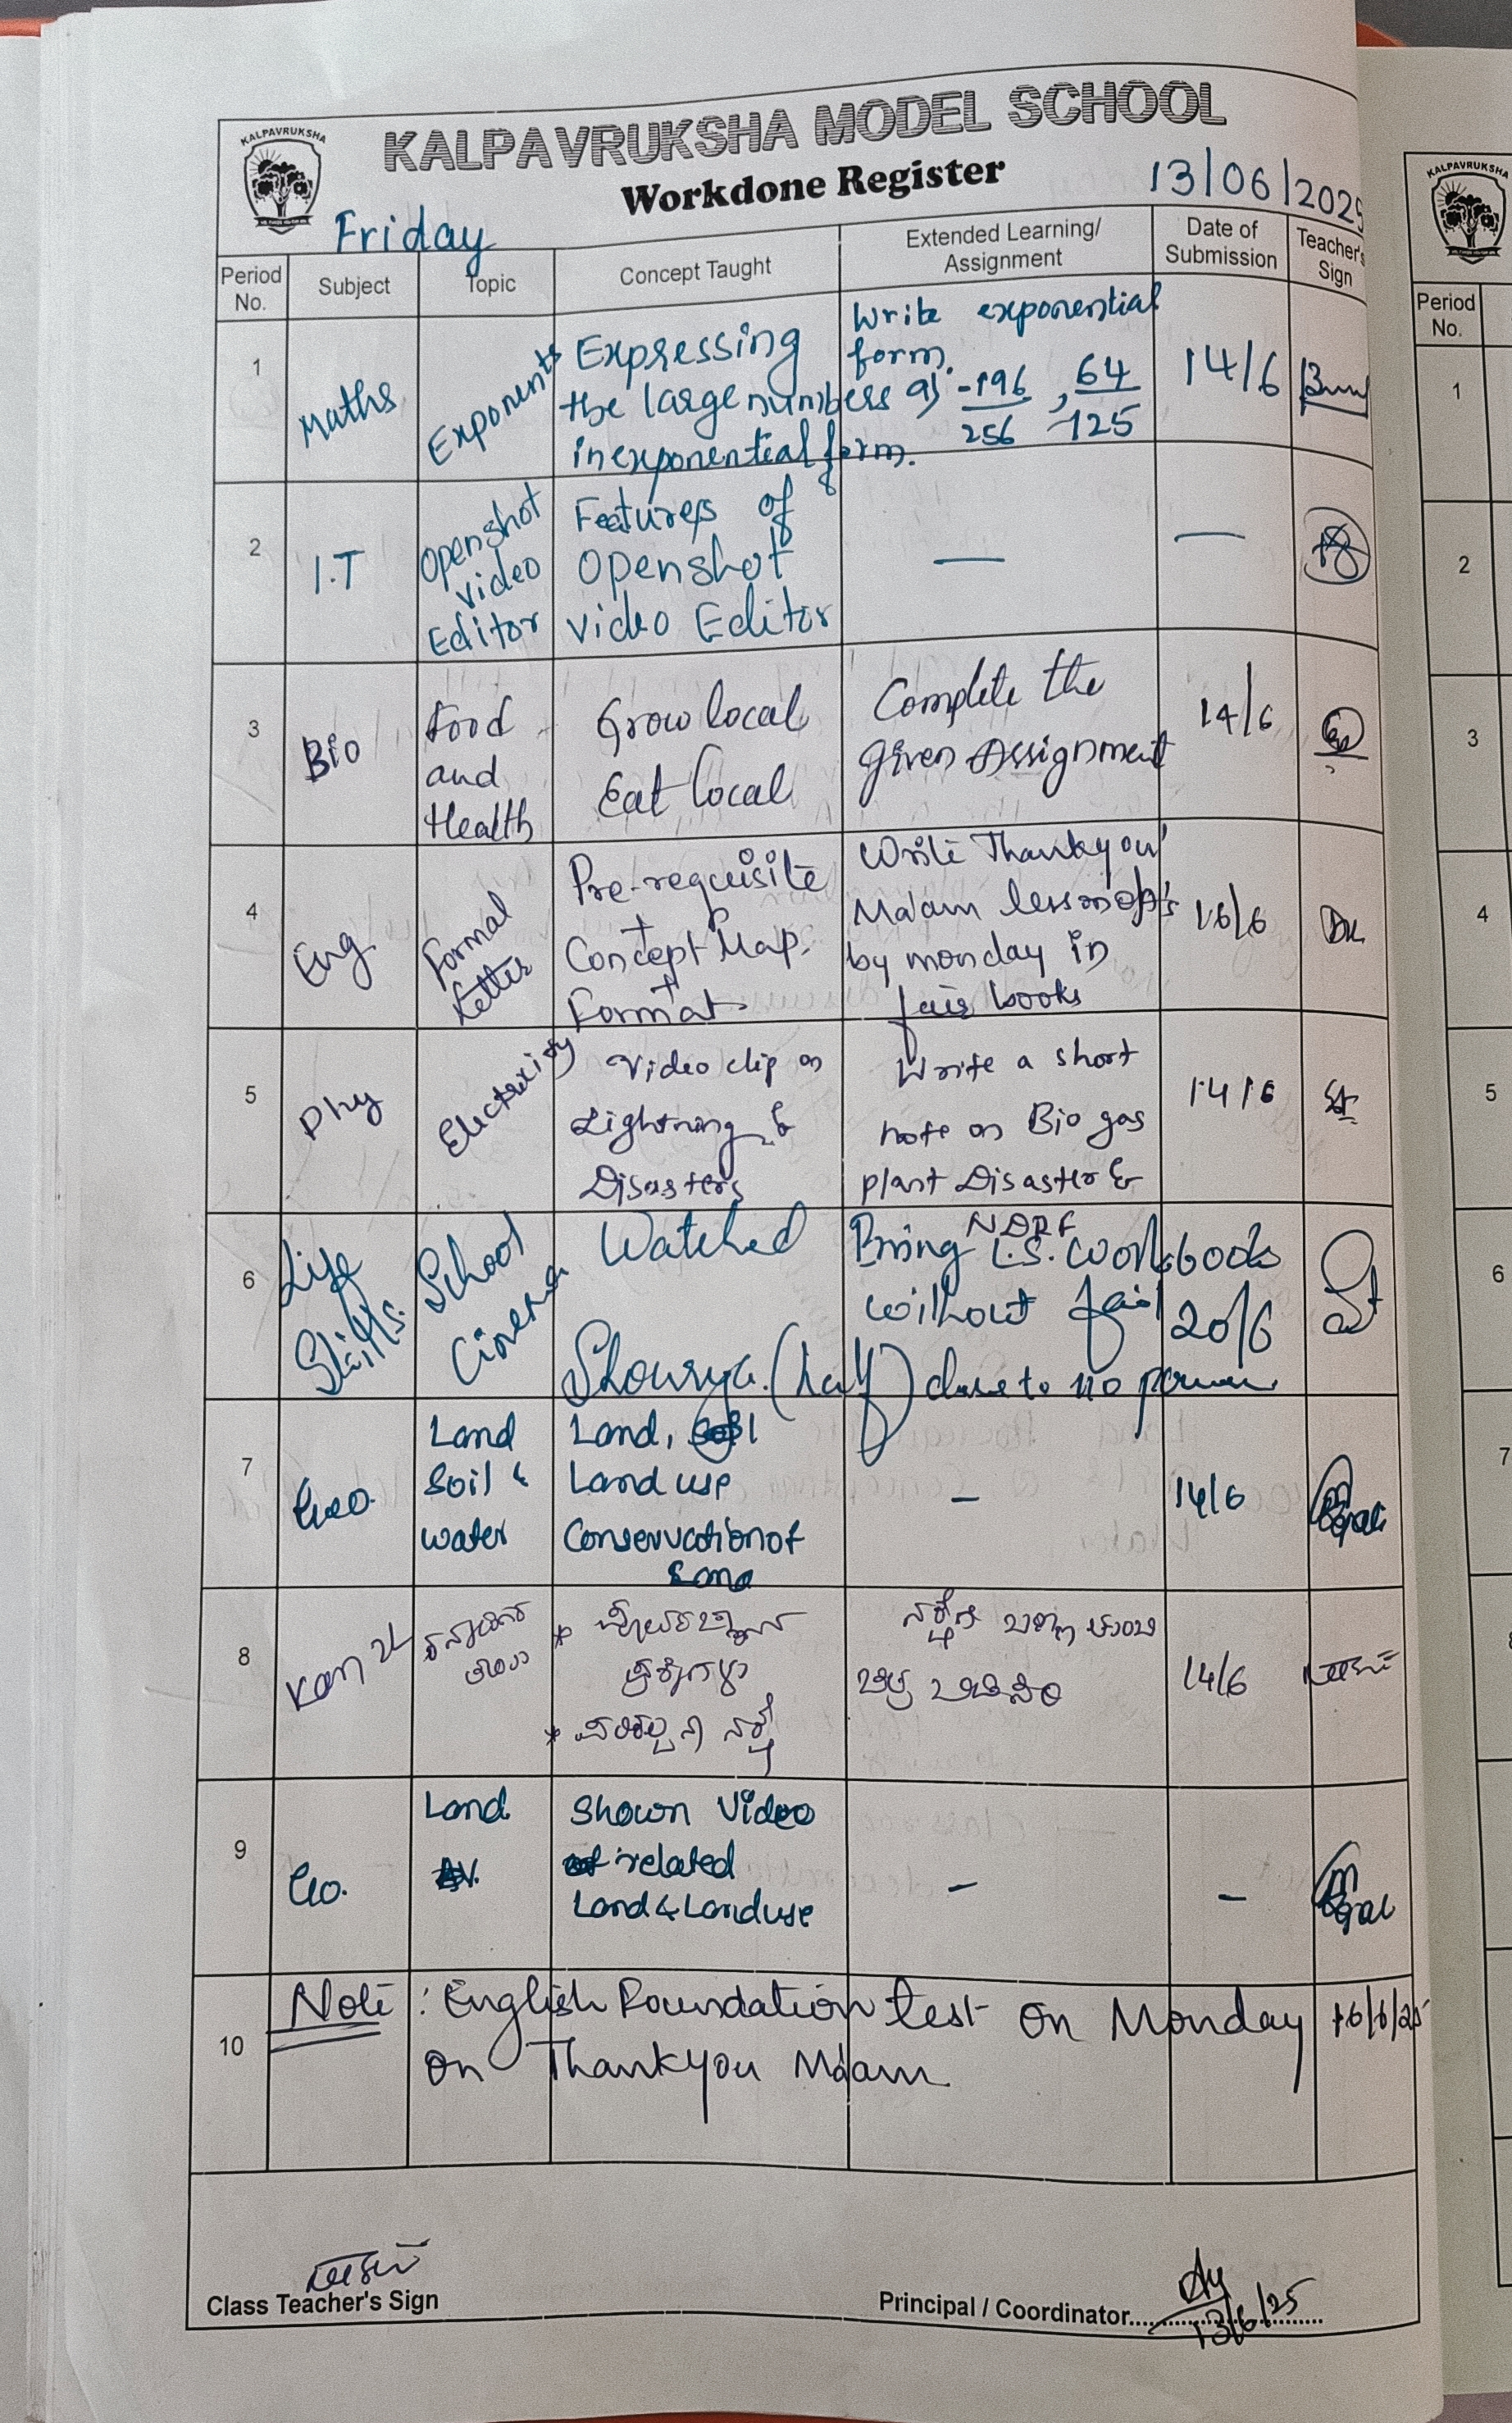 KALPAVRUKSHA
KALPAVRUKSHA MODEL SCHOOL
Workdone Register
13/06/2025
Friday
Period No.
Subject
Topic
Concept Taught
Extended Learning/ Assignment
Date of Submission
Teacher's Sign
1
Maths
Exponents
Expressing
the large numbers as
in exponential form.
Write exponential
form.
-196/256 , 64/-125
14/6
2
I.T
Openshot
Video
Editor
Features of
Openshot
Video Editor
—
—
3
Bio
Food
and
Health
Grow local
Eat local
Complete the
given Assignment
14/6
4
Eng
Formal
Letter
Pre-requisite
+
Concept Map.
+
Format.
Write Thankyou
Ma'am lesson
by monday in
fair books
16/6
5
Phy
Electricity
Video clip on
Lightning &
Disasters
Write a short
note on Bio gas
plant Disaster &
NDRF
14/6
6
Life
Skills.
School
Cinema
Watched
Shourya. (half) due to no power.
Bring L.S. work books
without fail
20/6
7
Geo.
Land
Soil &
water
Land, soil
Land use
Conservation of
Land
-
14/6
8
Kan
14/6
9
Geo.
Land
Shown Video
related
Land & Land use
-
-
10
Note : English Foundation test on Monday 16/6/25
on Thankyou Ma'am
Class Teacher's Sign
Principal / Coordinator
13/6/25
KALPAVRUKSHA
Period No.
1
2
3
4
5
6
7
8